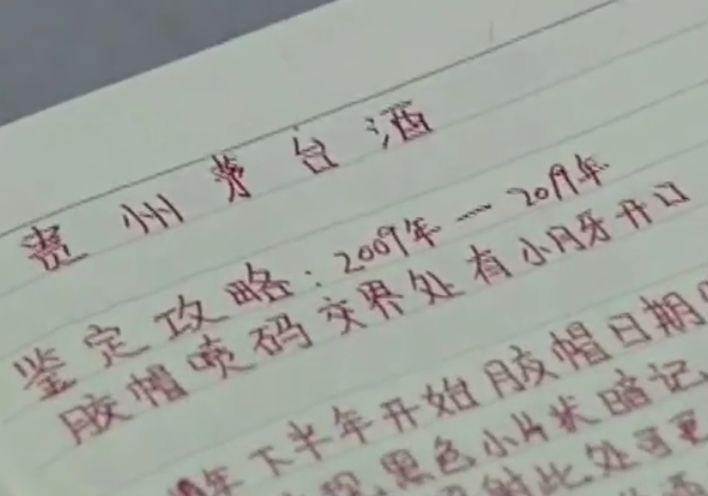 贵州茅台酒
鉴定攻略:2009年—2019年
胶帽喷码交界处有小月牙开口
年下半年开始胶帽日期
黑色小片状暗记
此处可更